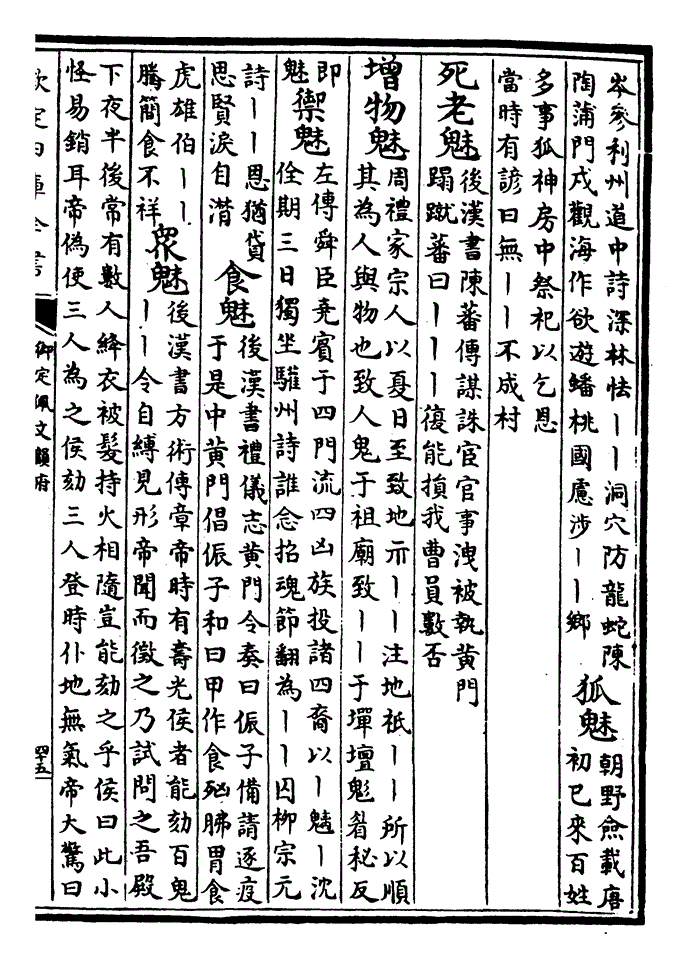 岑參利州道中詩深林怯丨丨洞穴防龍蛇陳
陶蒲門戍觀海作欲遊蟠桃國慮涉丨丨鄉
狐魅
朝野僉載唐
初已來百姓
多事狐神房中祭祀以乞恩
當時有諺曰無丨丨不成村
死老魅
後漢書陳蕃傳謀誅宦官事洩被執黃門
蹋蹴蕃曰丨丨丨復能損我曹員數否
增物魅
周禮家宗人以夏日至致地示丨丨注地祇丨丨所以順
其為人與物也致人鬼于祖廟致丨丨于墠壇鬽眉秘反
即
魅
禦魅
左傳舜臣堯賓于四門流四凶族投諸四裔以丨魑丨沈
佺期三日獨坐驩州詩誰念招魂節翻為丨丨囚柳宗元
詩丨丨恩猶貸
思賢淚自潸
食魅
後漢書禮儀志黃門令奏曰侲子備請逐疫
于是中黃門倡侲子和曰甲作食殈胇胃食
虎雄伯丨丨
騰簡食不祥
眾魅
後漢書方術傳章帝時有壽光侯者能劾百鬼
丨丨令自縛見形帝聞而徵之乃試問之吾殿
下夜半後常有數人絳衣被髮持火相隨豈能劾之乎侯曰此小
怪易銷耳帝偽使三人為之侯劾三人登時仆地無氣帝大驚曰
欽定四庫全書
御定佩文韻府
四十五